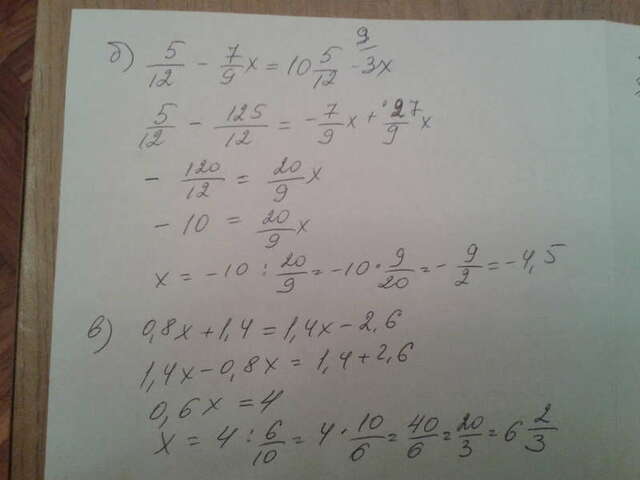 б) 5/12 - 7/9 x = 10 5/12 - 3x 9/
5/12 - 125/12 = - 7/9 x + 27/9 x
- 120/12 = 20/9 x
- 10 = 20/9 x
x = -10 : 20/9 = -10 · 9/20 = - 9/2 = -4,5
в) 0,8x + 1,4 = 1,4x - 2,6
1,4x - 0,8x = 1,4 + 2,6
0,6x = 4
x = 4 : 6/10 = 4 · 10/6 = 40/6 = 20/3 = 6 2/3